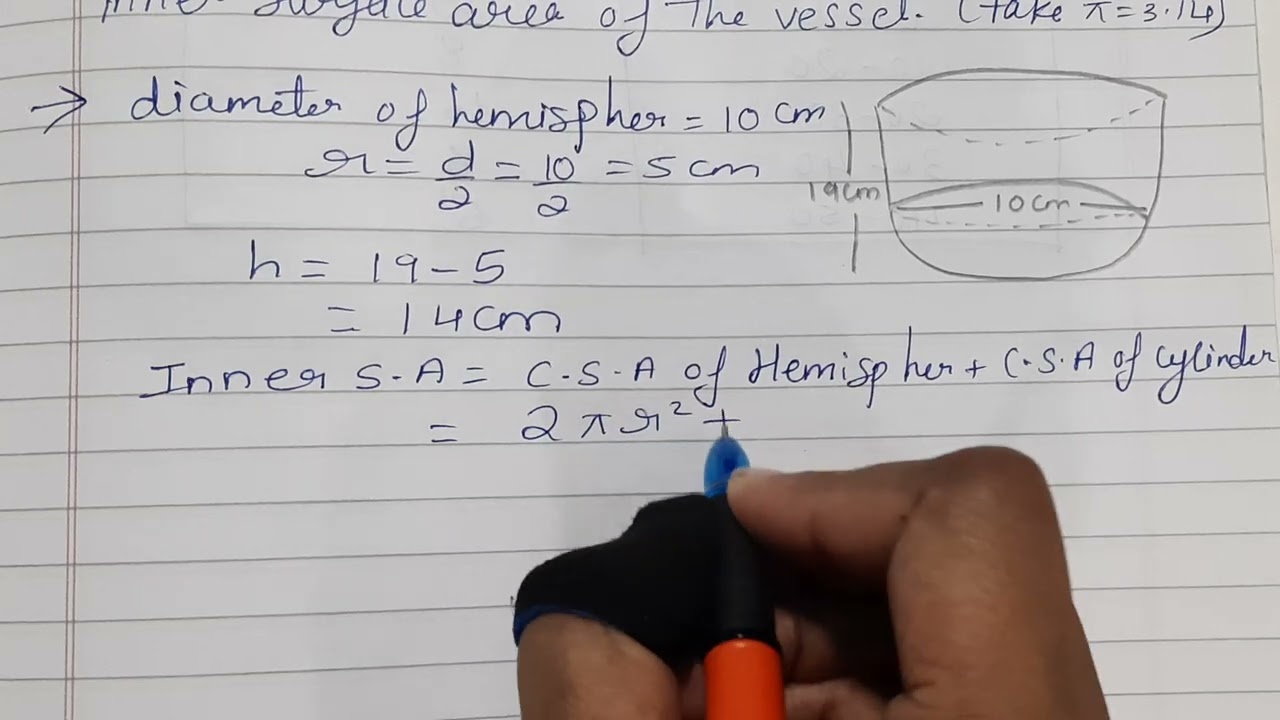 surface area of The vessel. (take π=3.14)
→ diameter of hemispher = 10 cm
r = d/2 = 10/2 = 5 cm
h = 19 - 5
= 14 cm
Inner S.A = C.S.A of Hemispher + C.S.A of cylinder
= 2πr² +
19cm
10cm